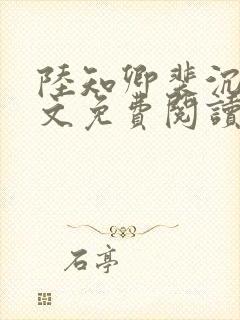 陸知卿裴沉
文免費閱讀
石亭